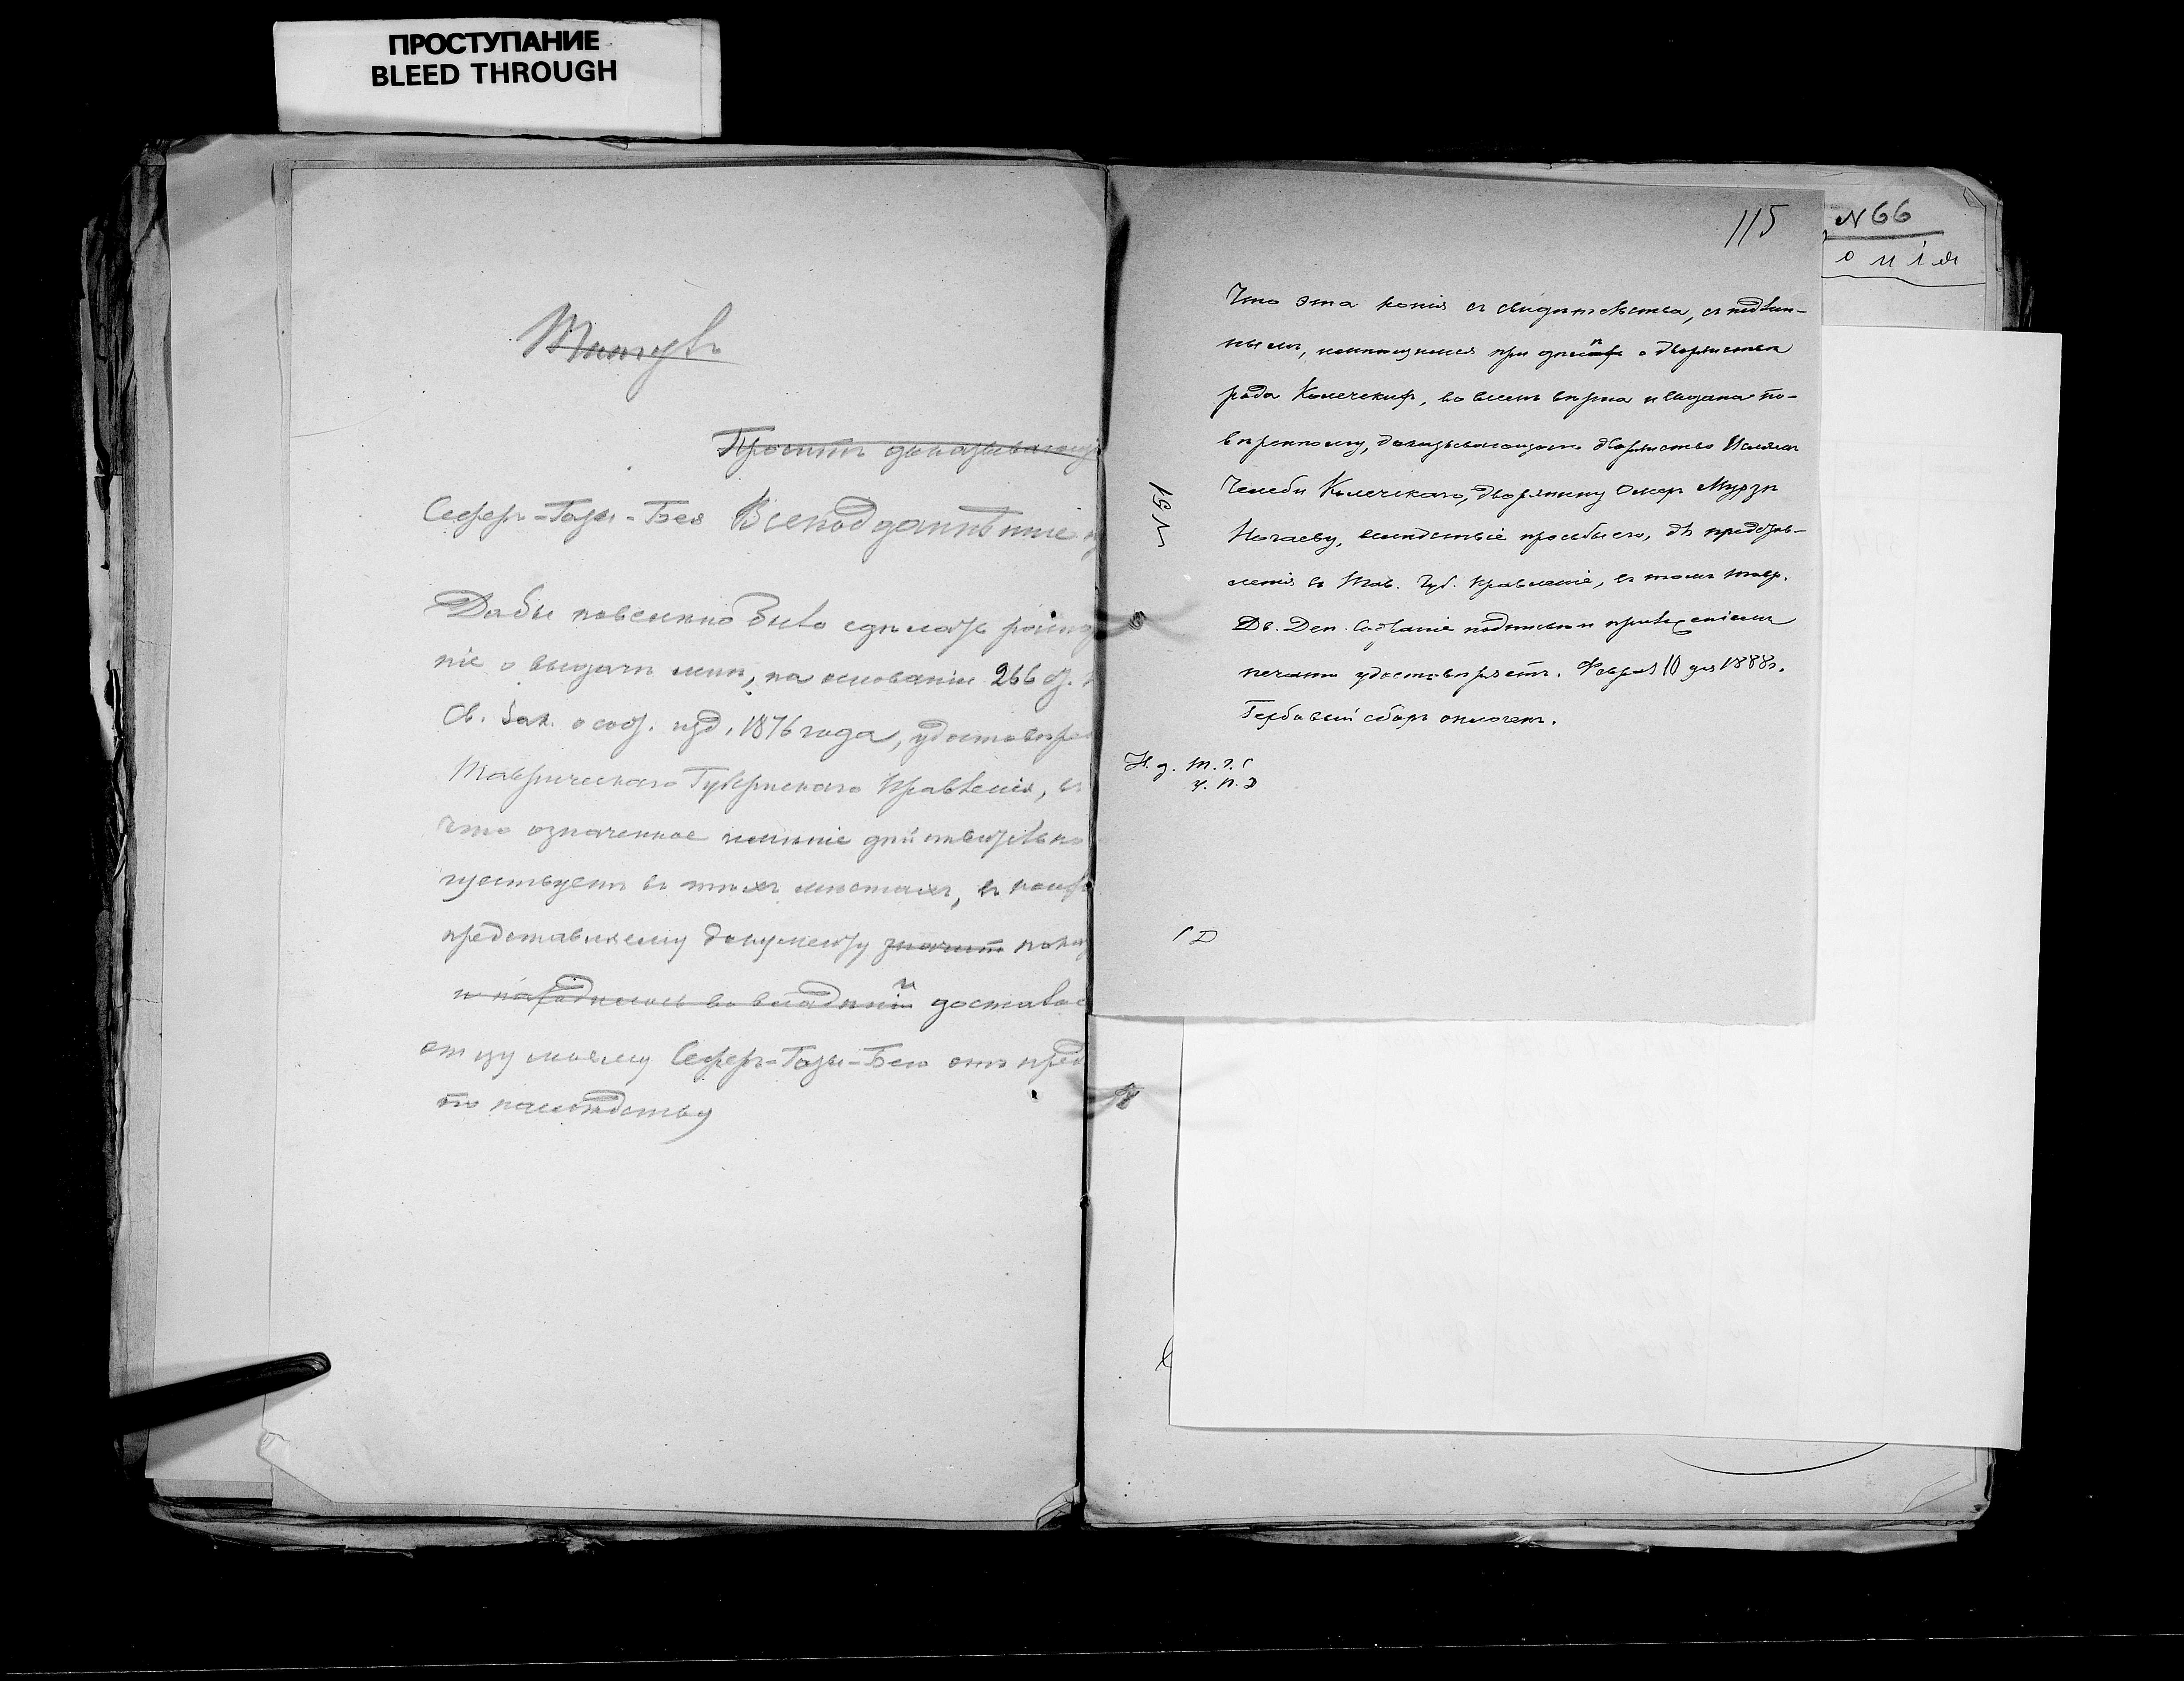 ПРОСТУПАНИЕ
BLEED THROUGH
Титулъ
Проситъ доказывающ
Сеферъ-Газы-Бея Всеподданнѣйше
Дабы повелено было сдѣлать распо
ніе о выдачѣ мнѣ, на основаніи 266 ст.
Св. Зак. о сост. изд. 1876 года, удостовѣре
Таврическаго Губернскаго Правленія, въ
что означенное имѣніе дѣйствительно
ществуетъ въ тѣхъ мѣстахъ, въ коихъ
представляемому документу значит пока
и находилось во владѣніи достало
отцу моему Сеферъ-Газы-Бею отъ пред
по наслѣдству
115
N 66
о п і я
Что эта копія съ свидѣтельства, съ подлин-
нымъ, имѣющимся при дѣлѣ о дворянствѣ
рода Колечскихъ, во всемъ вѣрна и выдана по-
вѣренному, доказывающаго дворянство Исляма
Челеби Колечскаго, дворянину Омеръ Мурзѣ
Ногаеву, вслѣдствіе просьбы его, дѣ представ-
ленія въ Тав. Губ. Правленіе, въ томъ Тавр.
Дв. Деп. Собраніе подписью и приложеніемъ
печати удостовѣряетъ. Февраля 10 дня 1888 г.
Гербовый сборъ оплоченъ.